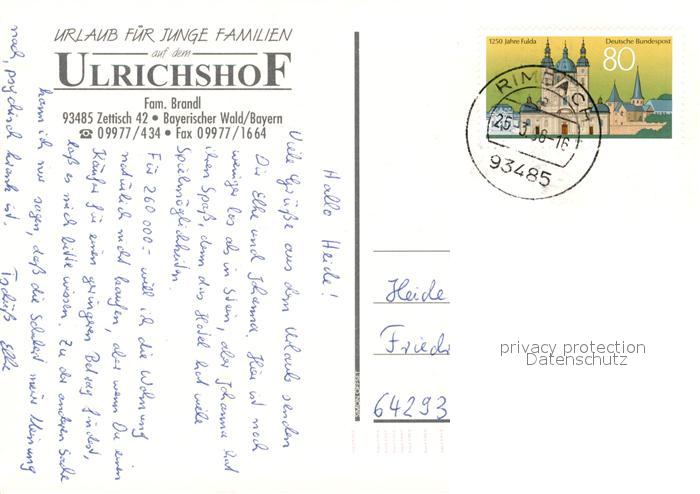 URLAUB FÜR JUNGE FAMILIEN
auf dem
ULRICHSHOF
Fam. Brandl
93485 Zettisch 42 • Bayerischer Wald/Bayern
☎ 09977/434 • Fax 09977/1664
Hallo Heide!
Viele Grüße aus dem Urlaub senden
Dir Elke und Johanna. Hier ist noch
weniger los als in Stein, aber Johanna hat
ihren Spaß, denn das Hotel hat viele
Spielmöglichkeiten.
Für 260 000.- will ich die Wohnung
natürlich nicht kaufen, aber wenn Du einen
Käufer für einen geringeren Betrag findest,
laß es mich bitte wissen. Zu der anderen Sache
kann ich nur sagen, daß die Schubert meiner Meinung
nach, psychisch krank ist. Tschüß Elke
1250 Jahre Fulda
Deutsche Bundespost
80
RIMBACH
25. 3. 96-16
93485
Heide
Friedr
64293
privacy protection
Datenschutz